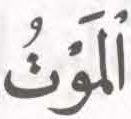 اُلْمَوْتُ